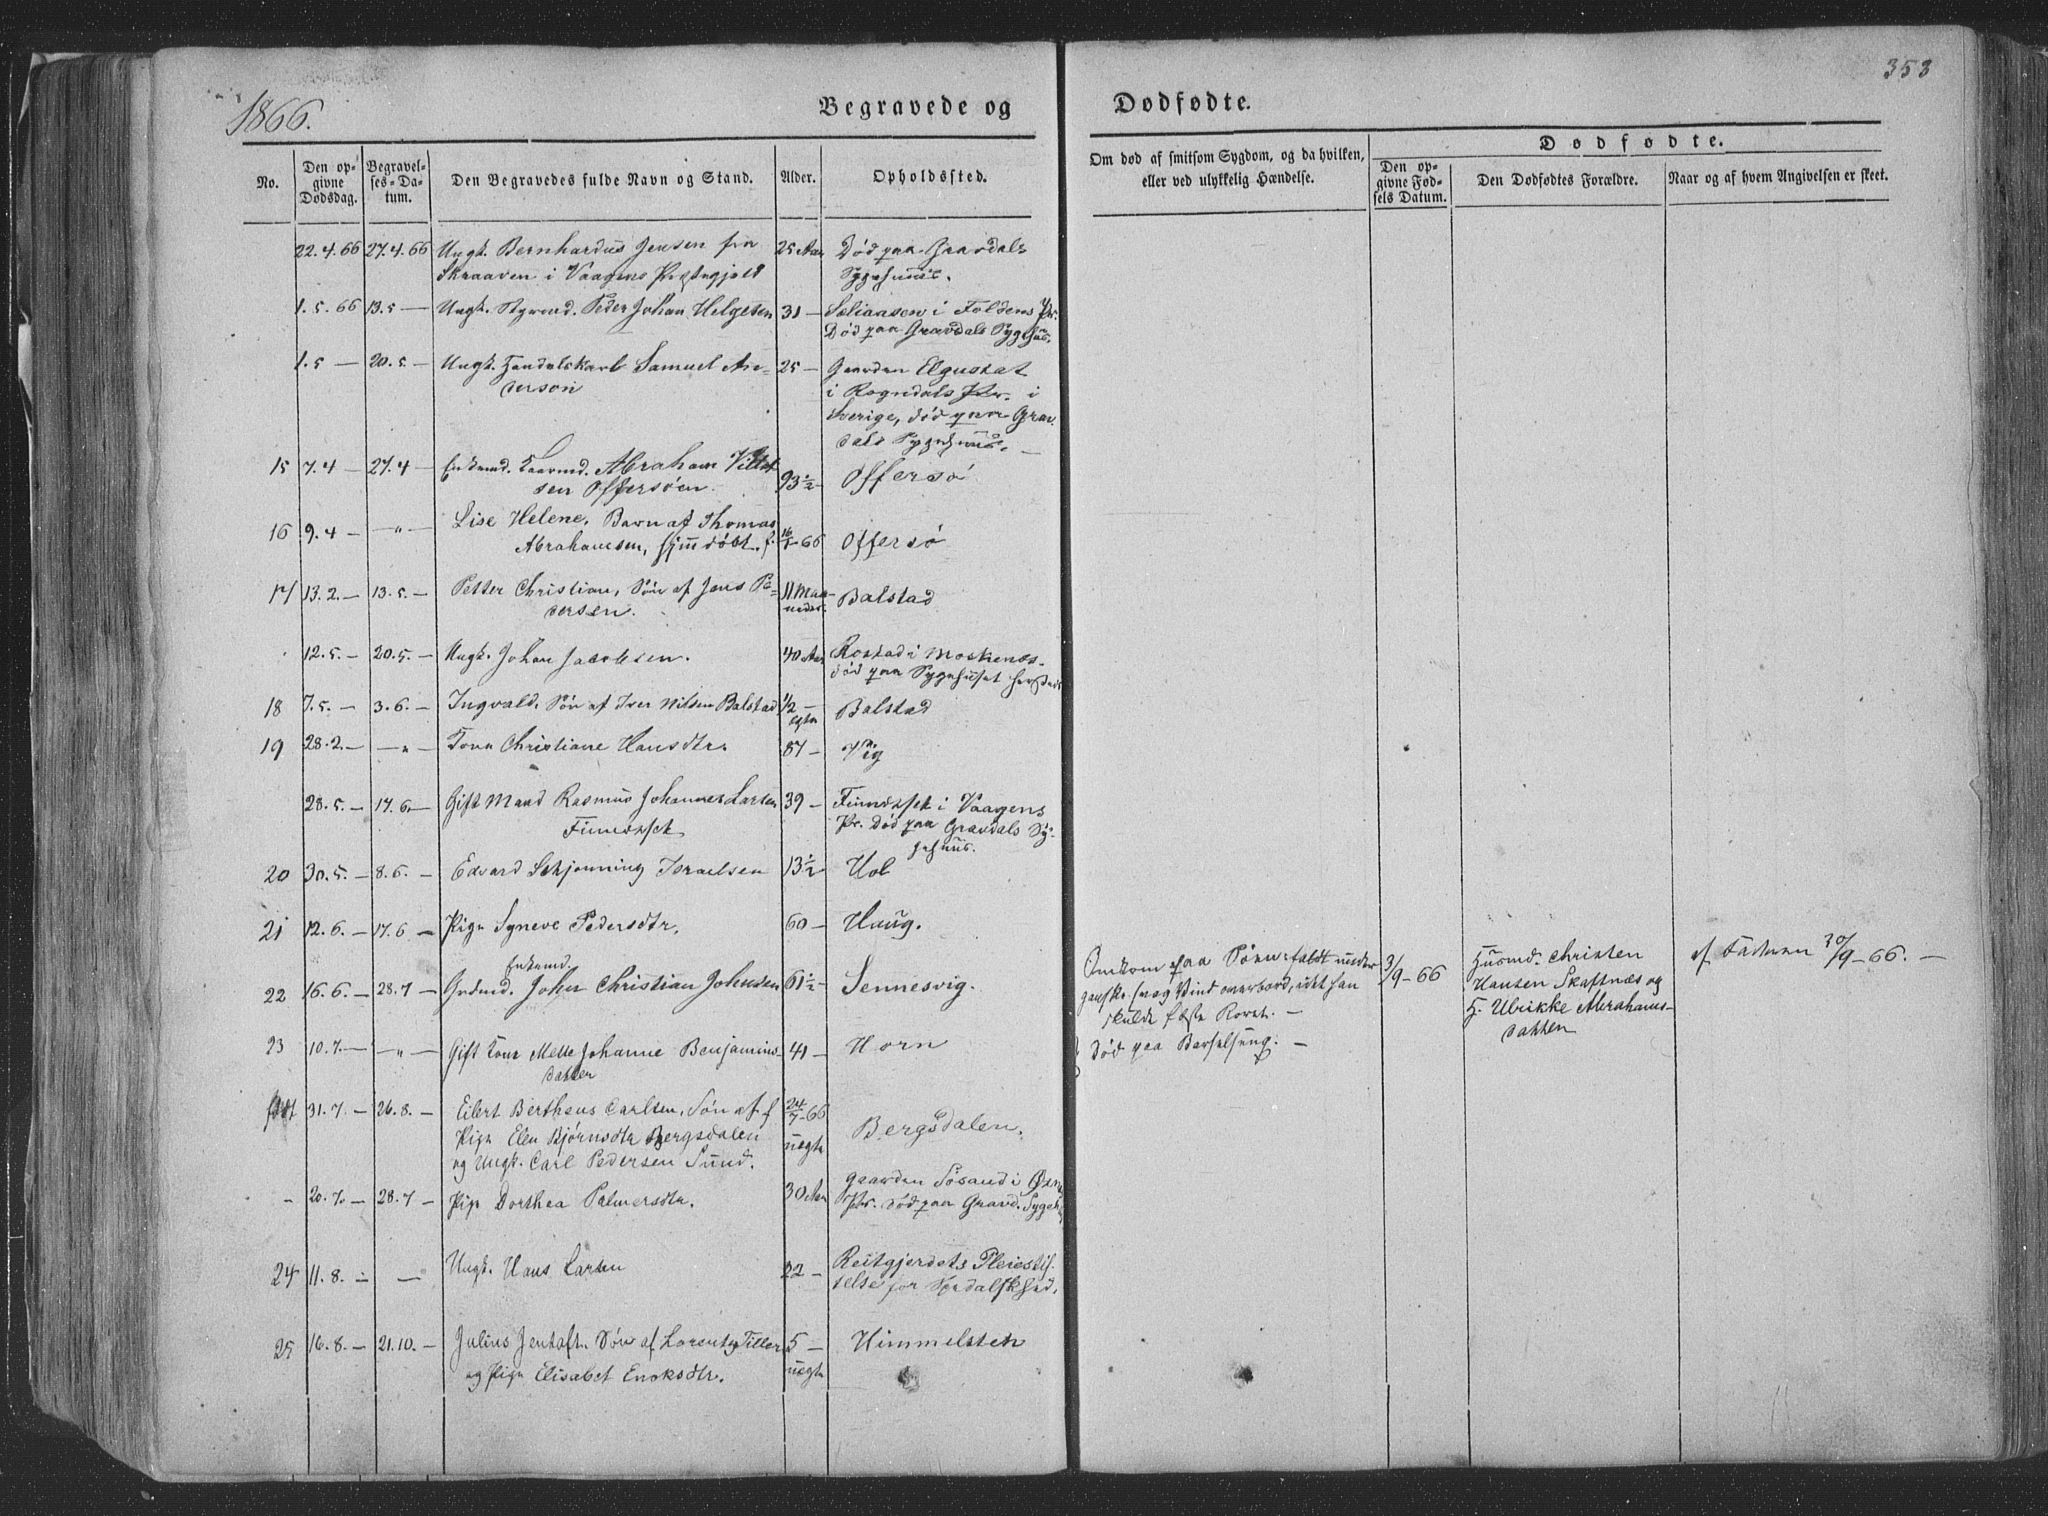 1866.
Begravede og
Dødfødte.
353
No.
Den op-
givne
Dødsdag.
Begravel-
ses-Da-
tum.
Den Begravedes fulde Navn og Stand.
Alder.
Opholdssted.
Om død af smitsom Sygdom, og da hvilken,
eller ved ulykkelig Hændelse.
Dødfødte.
Den op-
givne Fød-
sels Datum.
Den Dødfødtes Forældre.
Naar og af hvem Angivelsen er skeet.
22.4.66 27.4.66 Ungk. Bernhardus Jensen fra 25 Aar Død paa Gravdals
Skraaven i Vaagens Præstegjeld Sygehuus.
1.5.66 13.5 — Ungk. Peder Johan Helgesen 31 — i Foldens Pr.
Død paa Gravdals Sygehus.
1.5 — 20.5 — Ungk. Handelskarl Samuel An- 25 — Gaarden Elgustat
derson i Rogndals Pr. i
Sverige, død paa Grav-
dals Sygehuus. —
15 7.4 — 27.4 Enkemd. Kaarmd. Abraham 93½ — Offersø
sen Offersøen.
16 9.4 — — „ — Lise Helene, Barn af Thomas
Abrahamsen, hjmdøbt. f. 16/1-66 Offersø
17 13.2. — 13.5. — Petter Christian, Søn af Jens Pe- 11 Maa- Balstad
dersen. neder.
12.5. — 20.5. — Ungk. Johan Jacobsen. 40 Aar Rostad i Moskenes.
død paa Sygehuset
18 7.5. — 3.6. — Ingvald, Søn af Iver Nilsen Balstad ½ — Balstad
egte
19 28.2. — — „ — Kone Christiane Hansdtr. 87 — Vig
28.5. — 17.6. — Gift Mand Rasmus Johannes Larsen 39 — Finnesset i Vaagens
Finnesset Pr. Død paa Gravdals Sy-
gehuus.
20 30.5. — 8.6. — Edvard Schjønning Israelsen 13½ — Hol
21 12.6. — 17.6 — Pige Synneve Pedersdtr. 60 — Haug.
Enkemd.
22 16.6. — 28.7 — Grdmd. Johan Christian Johnsen 61½ — Sennesvig.
Omkom paa Søen, faldt under
ganske svag Vind overbord, idet han
skulde fæste Roret. —
3/9-66
Husmd. Christen
Hansen Skaftnæs og
H. Ulrikke Abrahams-
datten
af Faderen 30/9-66. —
23 10.7. — — „ — Gift Kone Mette Johanne Benjamins- 41 — Horn
datter
Død paa Barselseng. —
31.7. — 26.8. — Eilert Bertheus Carlsen, Søn af f. 24/7-66
Pige Elen Bjørnsdtr Bergsdalen uegte Bergsdalen.
og Ungk. Carl Pedersen Sund.
„ 20.7. — 28.7 — Pige Dorthea Palmersdtr. 30 Aar Gaarden Søsand i
Pr. Død paa Gravd. Sygeh
24 11.8. — — Ungk. Hans Larsen 22 — Reitgjerdets Pleiestif-
telse for Spedalskhed.
25 16.8. — 21.10. — Julius Jentoft. Søn af Lorents Tiller 5 — Himmelsten
og Pige Elisabet Enoksdtr. uegte